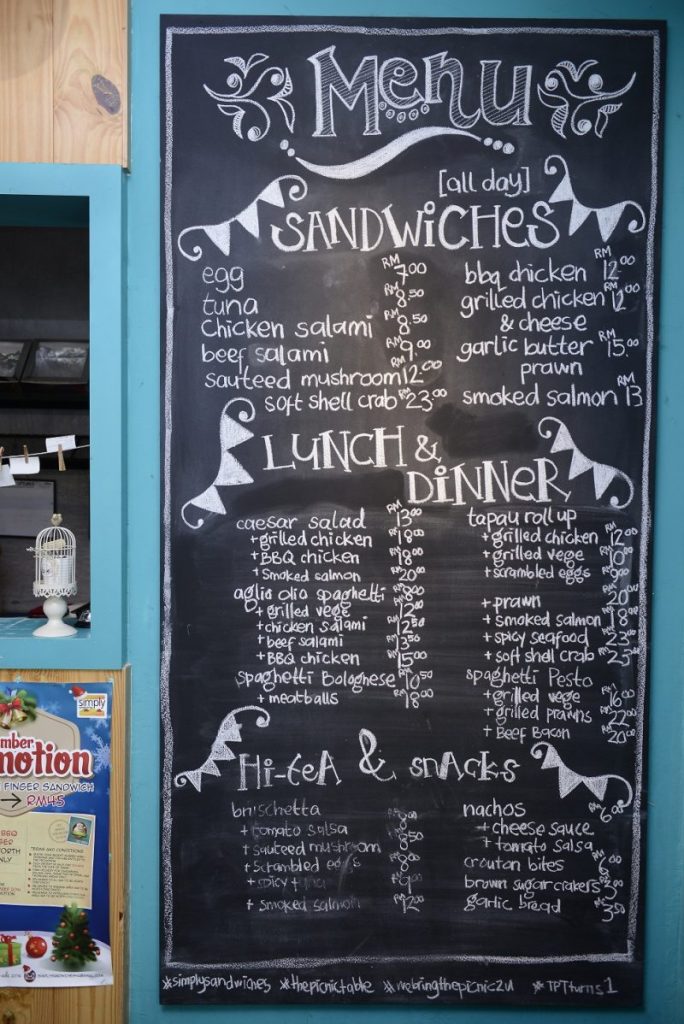 Menu
[all day]
SANDWiCHES
egg RM 7.00
tuna RM 8.50
Chicken salami RM 8.50
beef salami RM 9.00
sauteed mushroom 12.00
soft shell crab RM 23.00
bbq chicken RM 12.00
grilled chicken RM 12.00
& cheese
garlic butter RM 15.00
prawn
smoked salmon RM 13
LUNCH &
DiNNER
caesar salad RM 13.00
+ grilled chicken RM 18.00
+ BBQ chicken RM 18.00
+ smoked salmon RM 20.00
aglia olia spaghetti RM 8.00
+ grilled vege RM 12.00
+ chicken salami RM 12.50
+ beef salami RM 13.50
+ BBQ chicken RM 15.00
spaghetti Bolognese RM 10.50
+ meatballs RM 18.00
tapau roll up
+ grilled chicken RM 12.00
+ grilled vege RM 10.00
+ scrambled eggs RM 9.00
+ prawn RM 20.00
+ smoked salmon RM 18.00
+ spicy seafood RM 23.00
+ soft shell crab RM 25.00
spaghetti Pesto
+ grilled vege RM 16.00
+ grilled prawns RM 22.00
+ Beef Bacon RM 20.00
Hi-teA & snAcks
bruschetta
+ tomato salsa
+ sauteed mushroom
+ scrambled eggs
+ spicy tuna
+ smoked salmon 12.00
nachos RM 6.00
+ cheese sauce
+ tomato salsa
crouton bites RM 6.00
brown sugar crakers RM 3.00
garlic bread RM 3.50
#simplysandwiches #thepicnictable #webringthepicnic2u #TPTturns1
simply
mber
motion
FINGER SANDWICH
→ RM45
BBQ
ER
ORTH
NLY
TERMS AND CONDITIONS